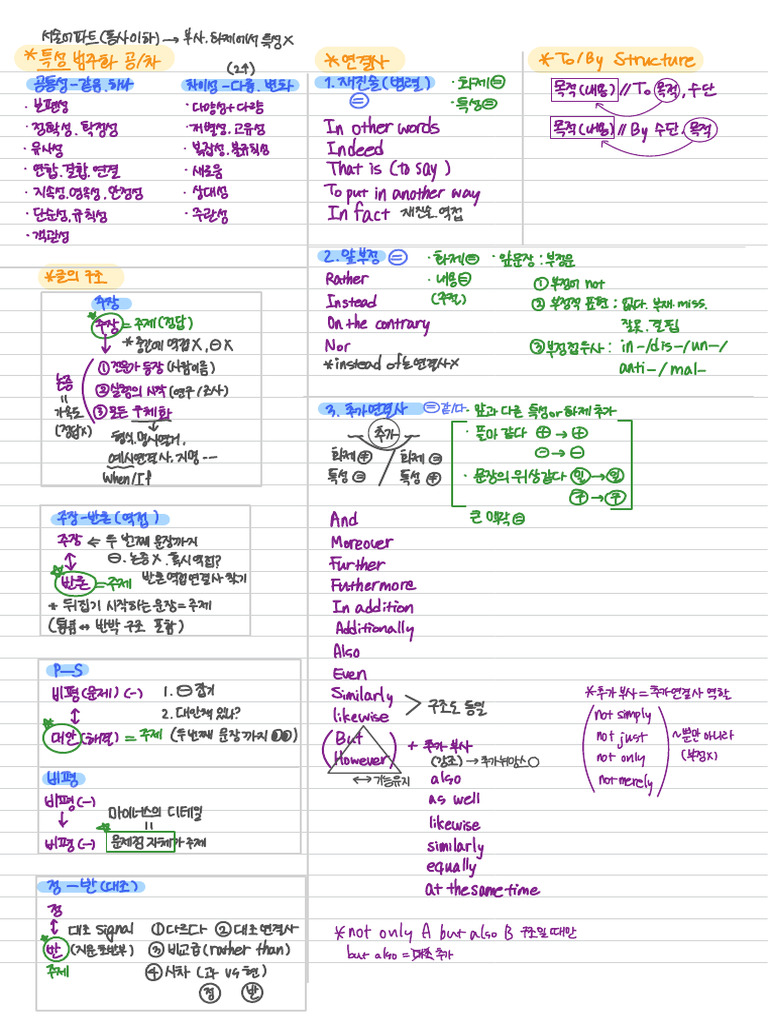 서술어파트(동사이하) → 부사.화제에서 특성X
*특성 범주화 공/차
(2개)
공통성-같음.하나
· 보편성
· 정확성.확정성
· 유사성
· 연합.결합.연결
· 지속성.영속성.안정성
· 단순성.규칙성
· 객관성
차이성-다름.변화
· 다양성+다양
· 개별성.고유성
· 복잡성.불규칙성
· 새로움
· 상대성
· 주관성
*글의 구조
주장
주장 = 주제(정답)
*중간에 역접X, ⊖X
① 전문가 등장 (사람이름)
② 실험의 시작 (연구/조사)
③ 모든 구체화
논증
=
가목도
(정답X)
형식.명사먼저,
예시연결사.지명 ---
when/If
주장-반론(역접)
주장 ⇐ 두 번째 문장까지
⊖.논증X.혹시역접?
반론 = 주제 반론역접연결사 찾기
* 뒤집기 시작하는 문장=주제
(통념↔반박 구조 포함)
P-S
비평(문제)(-) 1. ⊖잡기
2. 대안책 있나?
대안(해결) = 주제 (두번째 문장까지
비평
비평(-)
마이너스의 디테일
=
비평(-) 문제점 자체가 주제
정-반(대조)
정
대조 signal ① 다르다 ② 대조연결사
반 (지문 초반부) ③ 비교급(rather than)
주제 ④ 시차 (과 vs 현)
정 반
*연결사
1. 재진술(병렬) · 화제⊜
⊜ · 특성⊜
In other words
Indeed
That is (to say)
To put in another way
In fact 재진술.역접
*To/By Structure
목적(내용)// To 목적, 수단
목적(내용)// By 수단.목적
2. 앞부정 ⊜ · 화제⊜ · 앞문장 : 부정문
Rather · 내용⊜ ① 부정어 not
Instead (주적) ② 부정적 표현 : 없다.부재.miss.
On the contrary 잘못.결핍
Nor ③ 부정접두사 : in-/dis-/un-/
*instead of는 연결사X anti-/mal-
3. 추가연결사 ⊜같/다 · 앞과 다른 특성or화제 추가
추가
화제⊕ 화제⊜
특성⊜ 특성⊕
· 품아 같다 ⊕→⊕
⊖→⊖
· 문장의 위상같다 인→인
주→주
큰 생각⊜
And
Moreover
Further
Futhermore
In addition
Additionally
Also
Even
Similarly
likewise
> 구조도 동일
(But
However) + 추가 부사
↔기능유지
(강조) → 추가뉘앙스○
also
as well
likewise
similarly
equally
at the same time
*추가 부사=추가연결사 역할
not simply
not just
not only
not merely
~뿐만 아니라
(부정X)
*not only A but also B 구조일 때만
but also = 대조추가